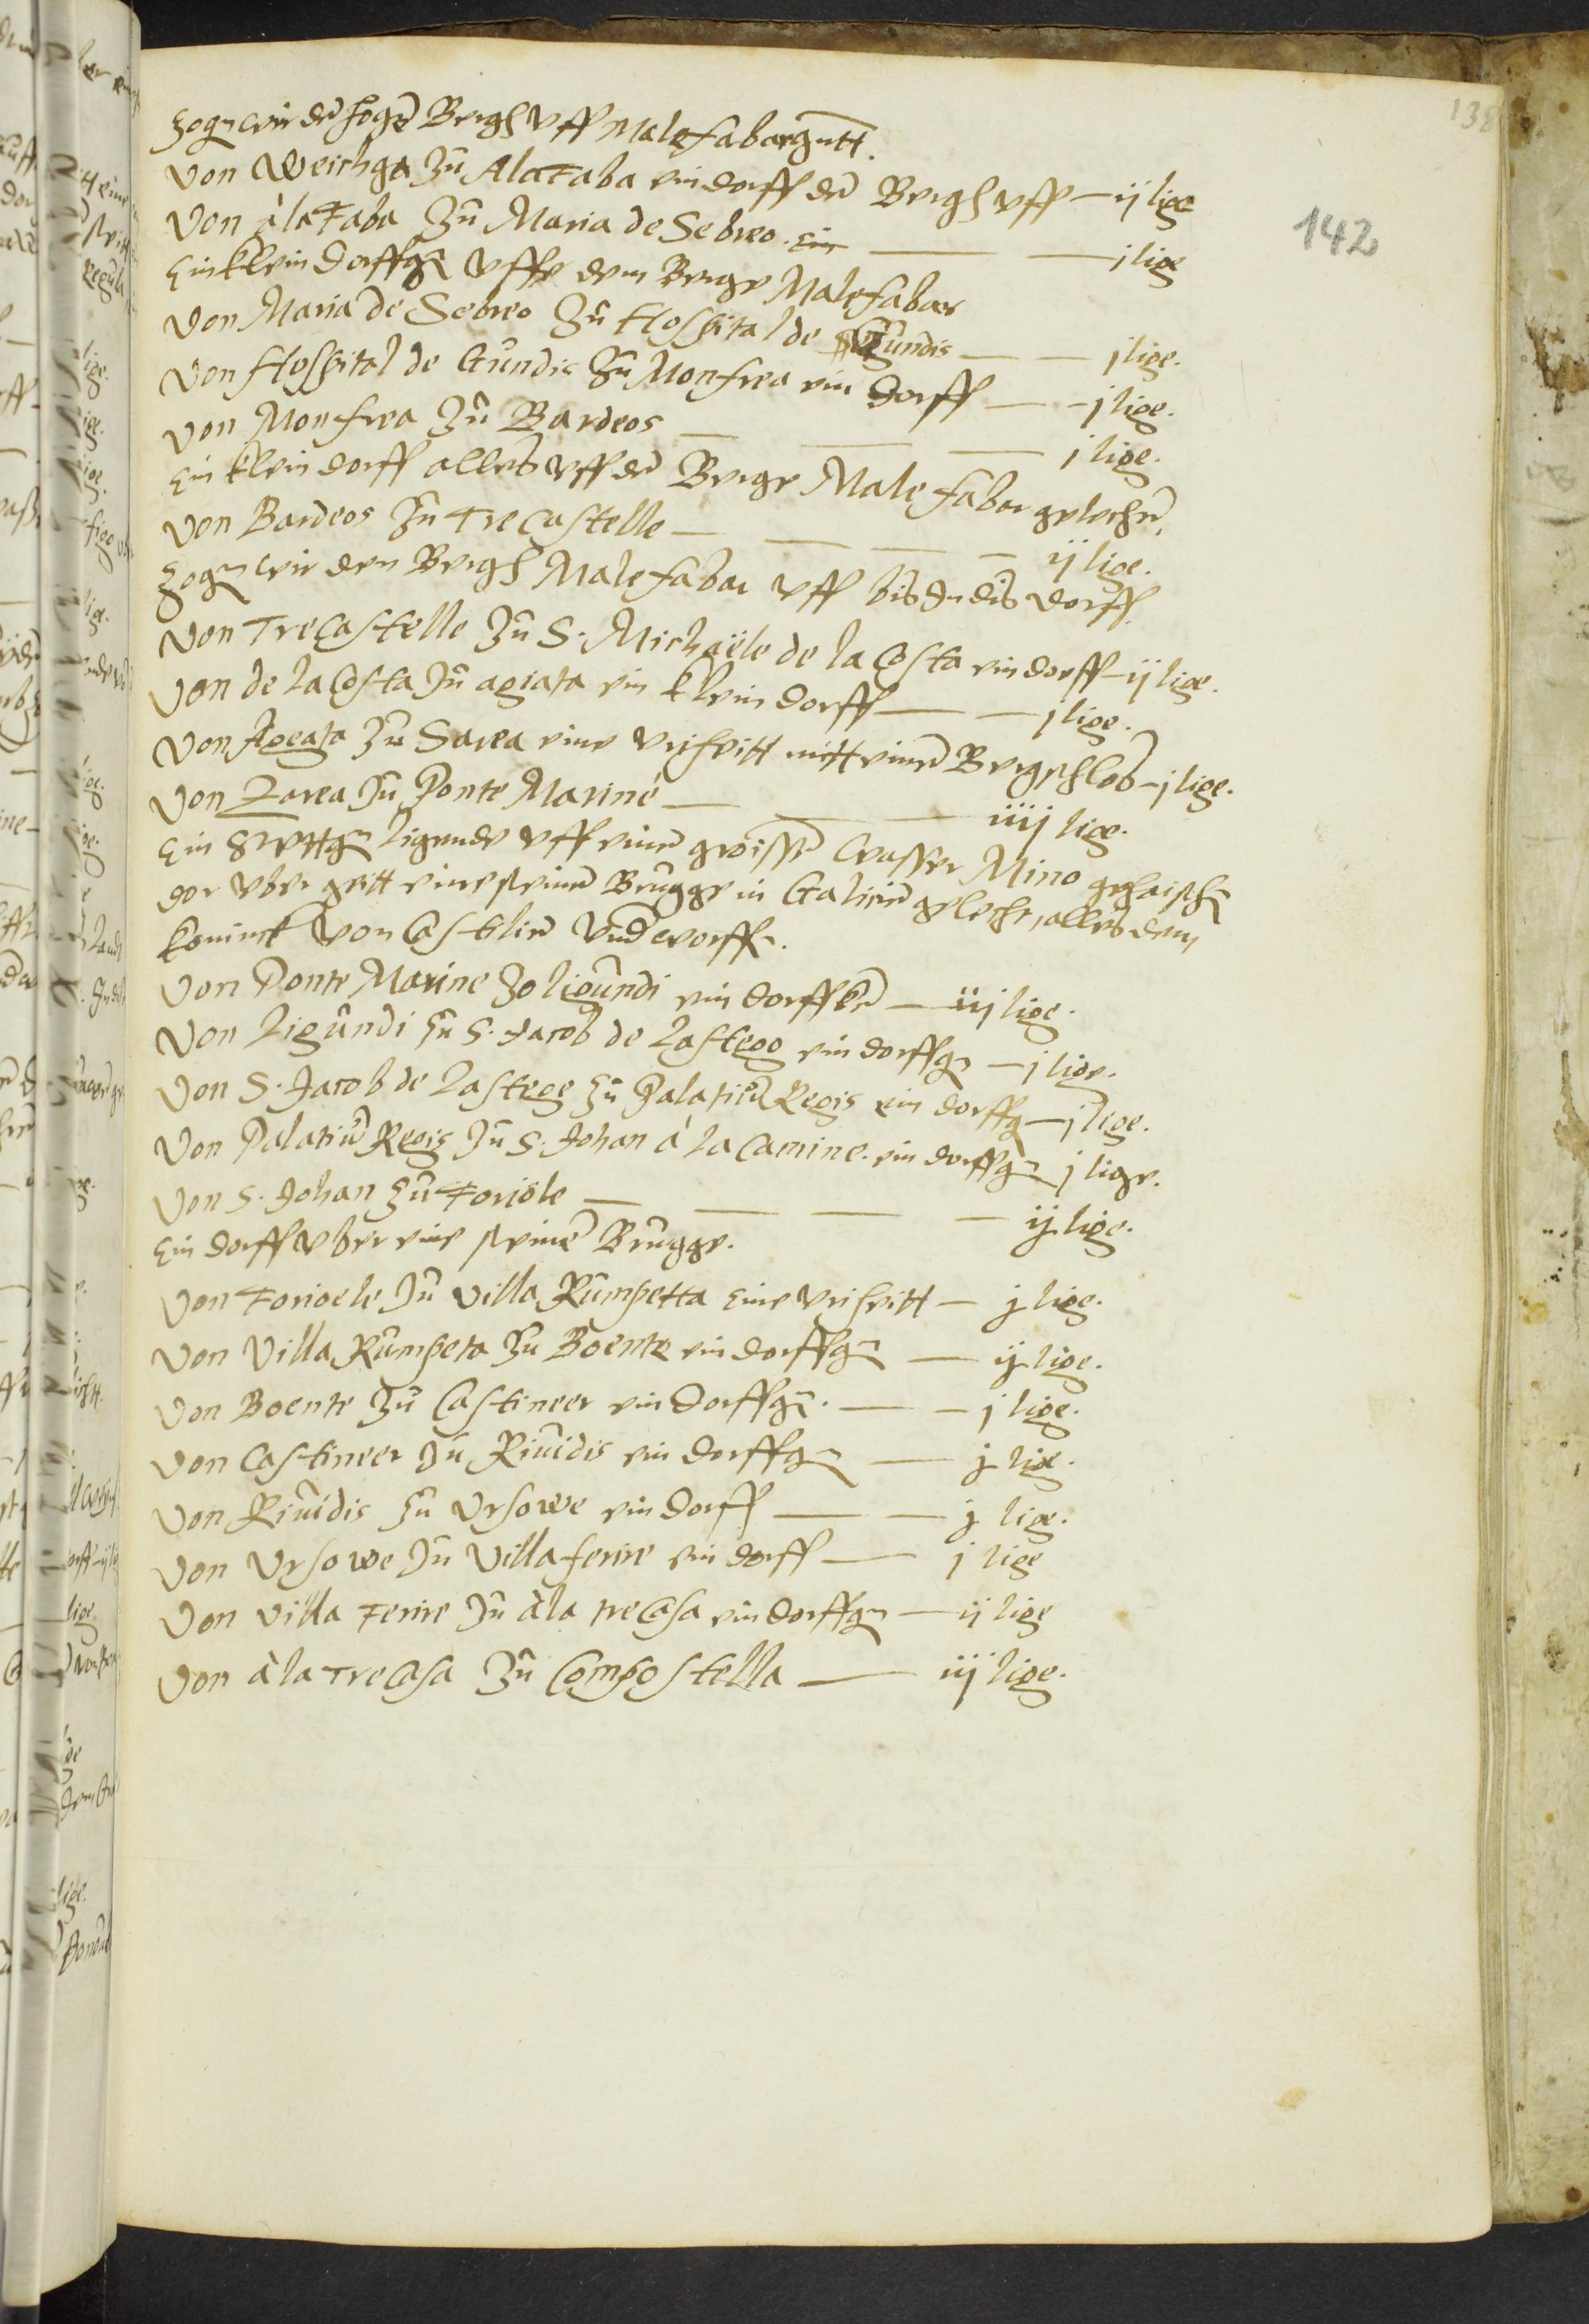 138
142
Zogen wir den hogen Bergh vff Malefabar gnatt.
Von Weichga zu Alafaba ein dorff den Bergh vff — ij lige
Von à la Faba zu Maria de Sebreo. Ein — — j lige
Ein klein dorffgen vff dem Berge Malefabar
Von Maria de Sebreo zu Hospital de Gundis — — j lige.
Von Hospital de Gundis zu Monfrea ein dorff — — j lige.
Von Monfrea zu Bardeos — — — j lige.
Ein klein dorff alles vff den Berge Malefabar gelegen,
Von Bardeos zu Trecastelle — — — — ij lige.
Zogen wir den Bergh Malefabar vff bis in dis dorff.
Von Trecastelle zu S. Michaële de la Costa ein dorff — ij lige.
Von de la Costa zu agiata ein klein dorff — — j lige.
Von Ageata zu Sarea eine vrischeitt mitt einem Bergschlos — j lige.
Von Zarea zu Ponte Mariné — — — iiij lige.
Ein Stettgen ligende vff einem groissen wasser Mino gehaischen
dar vber geitt eine steinen Brugge in Galicien gelegen, alles dem
Koninck von Castilien vnderworffen.
Von Ponte Marine zo ligundi ein dorffken — iij lige.
Von Ligundi zu S. Jacob de Lastego ein dorffgen — j lige.
Von S. Jacob de Lastege zu Palatium Regis ein dorffgen — j lige.
Von Palatium Regis zu S. Johan à la Camine. ein dorffgen j lige.
Von S. Johan zu Foriöle — — — — ij lige.
Ein dorff vber eine steinen Brugge.
Von Forioele zu Villa Rumpetta Eine vrischeitt — j lige.
Von Villa Rumpeta zu Boente ein dorffgen — ij lige.
Von Boente zu Castineer ein dorffgen. — — j lige.
Von Castineer zu Riuidis ein dorffgen — j lige.
Von Riuidis zu Vrsowe ein dorff — — j lige.
Von Vrsowe zu Villaferire ein dorff — j lige
Von Villa Ferire zu à la trecasa ein dorffgen — ij lige
Von à la Trecasa zu Compostella — iij lige.